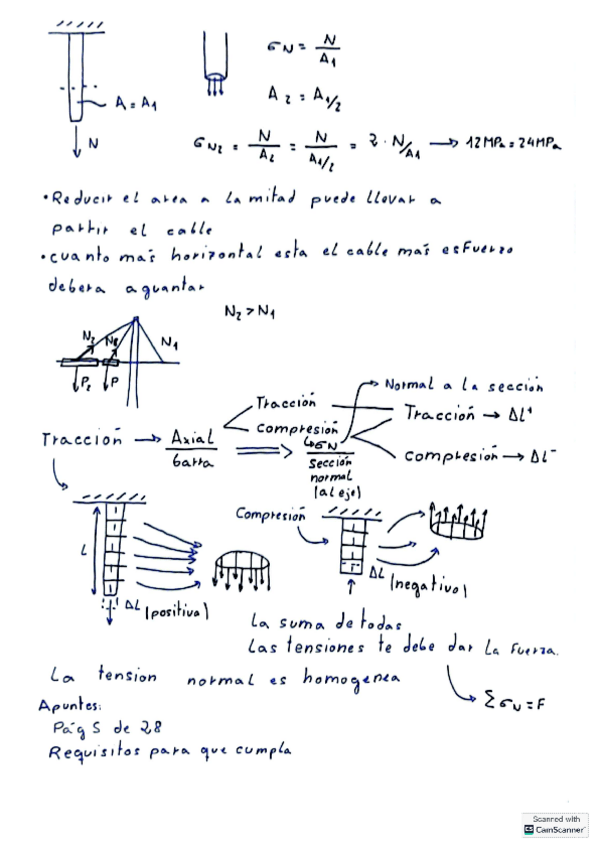 σN = N/A1
A = A1
A2 = A1/2
N
σN2 = N/A2 = N/A1/2 = 2 · N/A1 → 12MPa = 24MPa
• Reducir el area a la mitad puede llevar a
partir el cable
• cuanto más horizontal esta el cable más esfuerzo
debera aguantar
N2 > N1
N2 N1
P2 P
Normal a la sección
Tracción
Tracción → ΔL+
Compresión
Tracción → Axial
barra
σN
Sección
normal
(al eje)
compresión → ΔL-
Compresión
L
ΔL (positiva)
ΔL (negativa)
La suma de todas
Las tensiones te debe dar la fuerza.
La tension normal es homogenea
ΣσN = F
Apuntes:
Pág 5 de 28
Requisitos para que cumpla
Scanned with
CamScanner